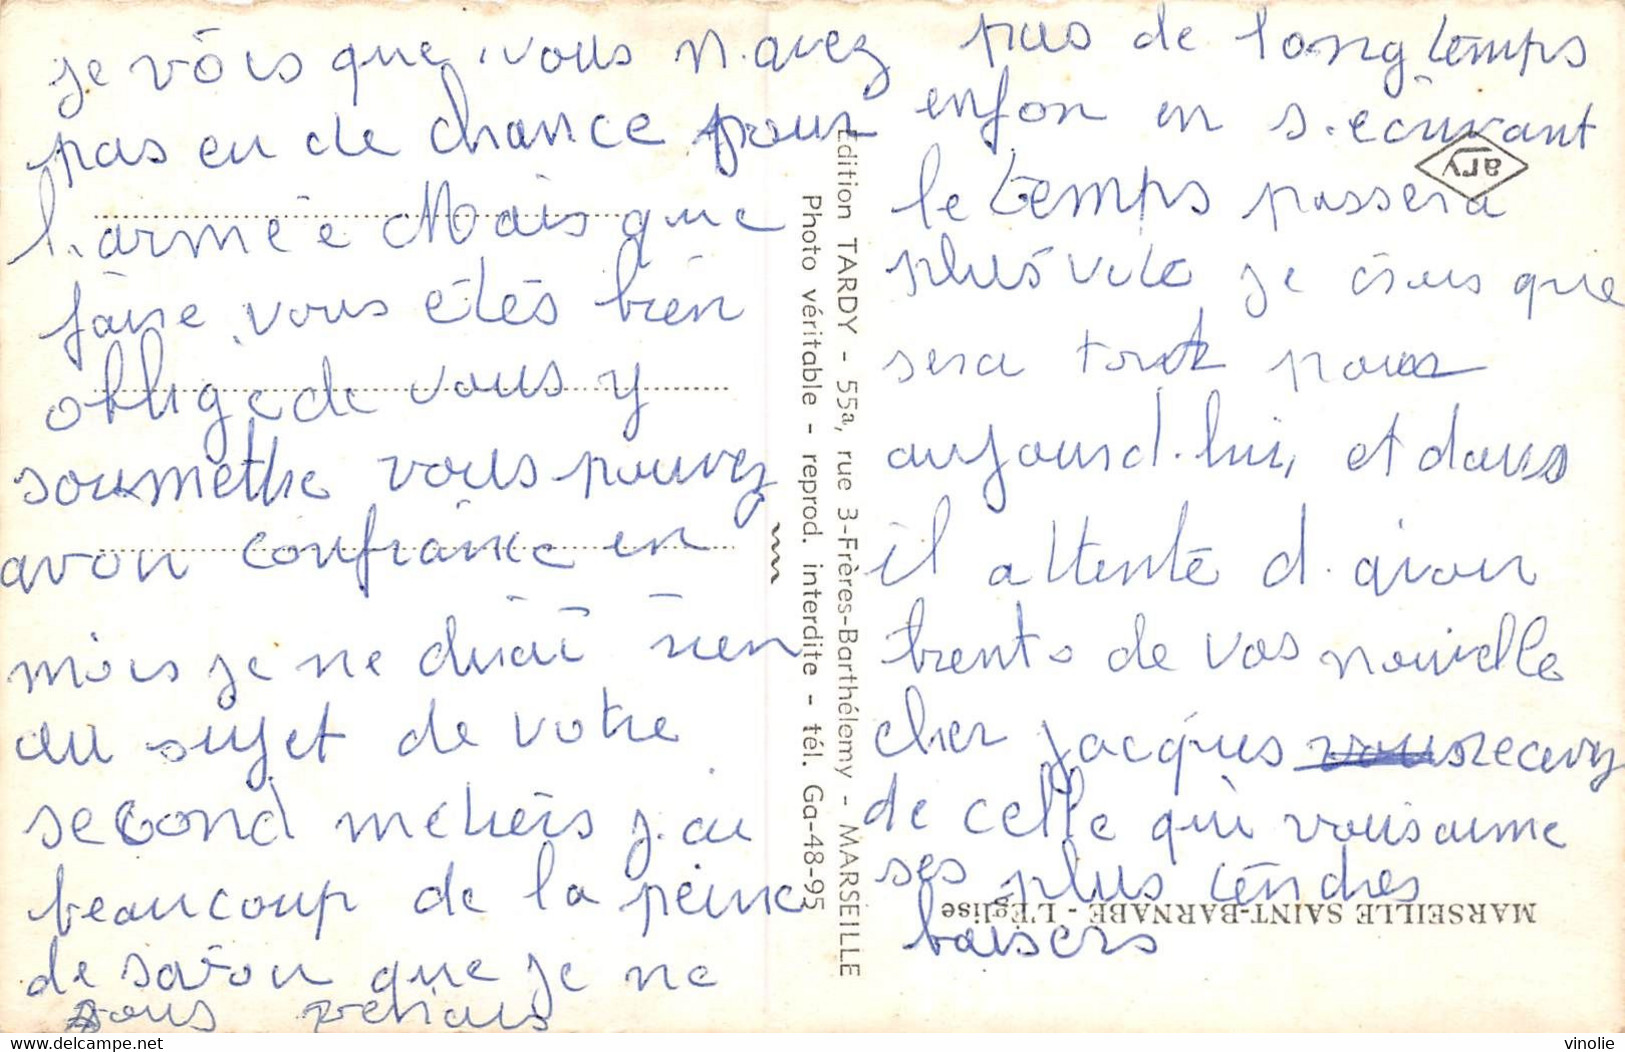 je vois que vous n.avez
pas eu de chance pour
l.armée Mais que
faire vous étés bien
obligé de vous y
soumethe vous pouvez
avoir confiance en
mois je ne dirai rien
au sujet de votre
second métiers j.ai
beaucoup de la peine
de savoir que je ne
vous verrais
pas de longtemps
enfon en s.ecrivant
le temps passera
plus vite je crois que
sera tout pour
aujourd.hui, et dans
il attente d.avoir
de vos nouvelle
cher jacques vous recevez
de celle qui vous aime
ses plus tendres
baisers
Edition TARDY - 55a, rue 3-Frères-Barthélemy - MARSEILLE
Photo véritable - reprod. interdite - tél. Ga-48-95
ary
MARSEILLE SAINT-BARNABÉ - L'Église
www.delcampe.net
vinolie